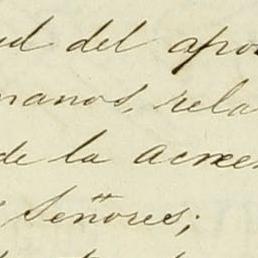 ud del apo
manos, rela
de la acree
Señores;